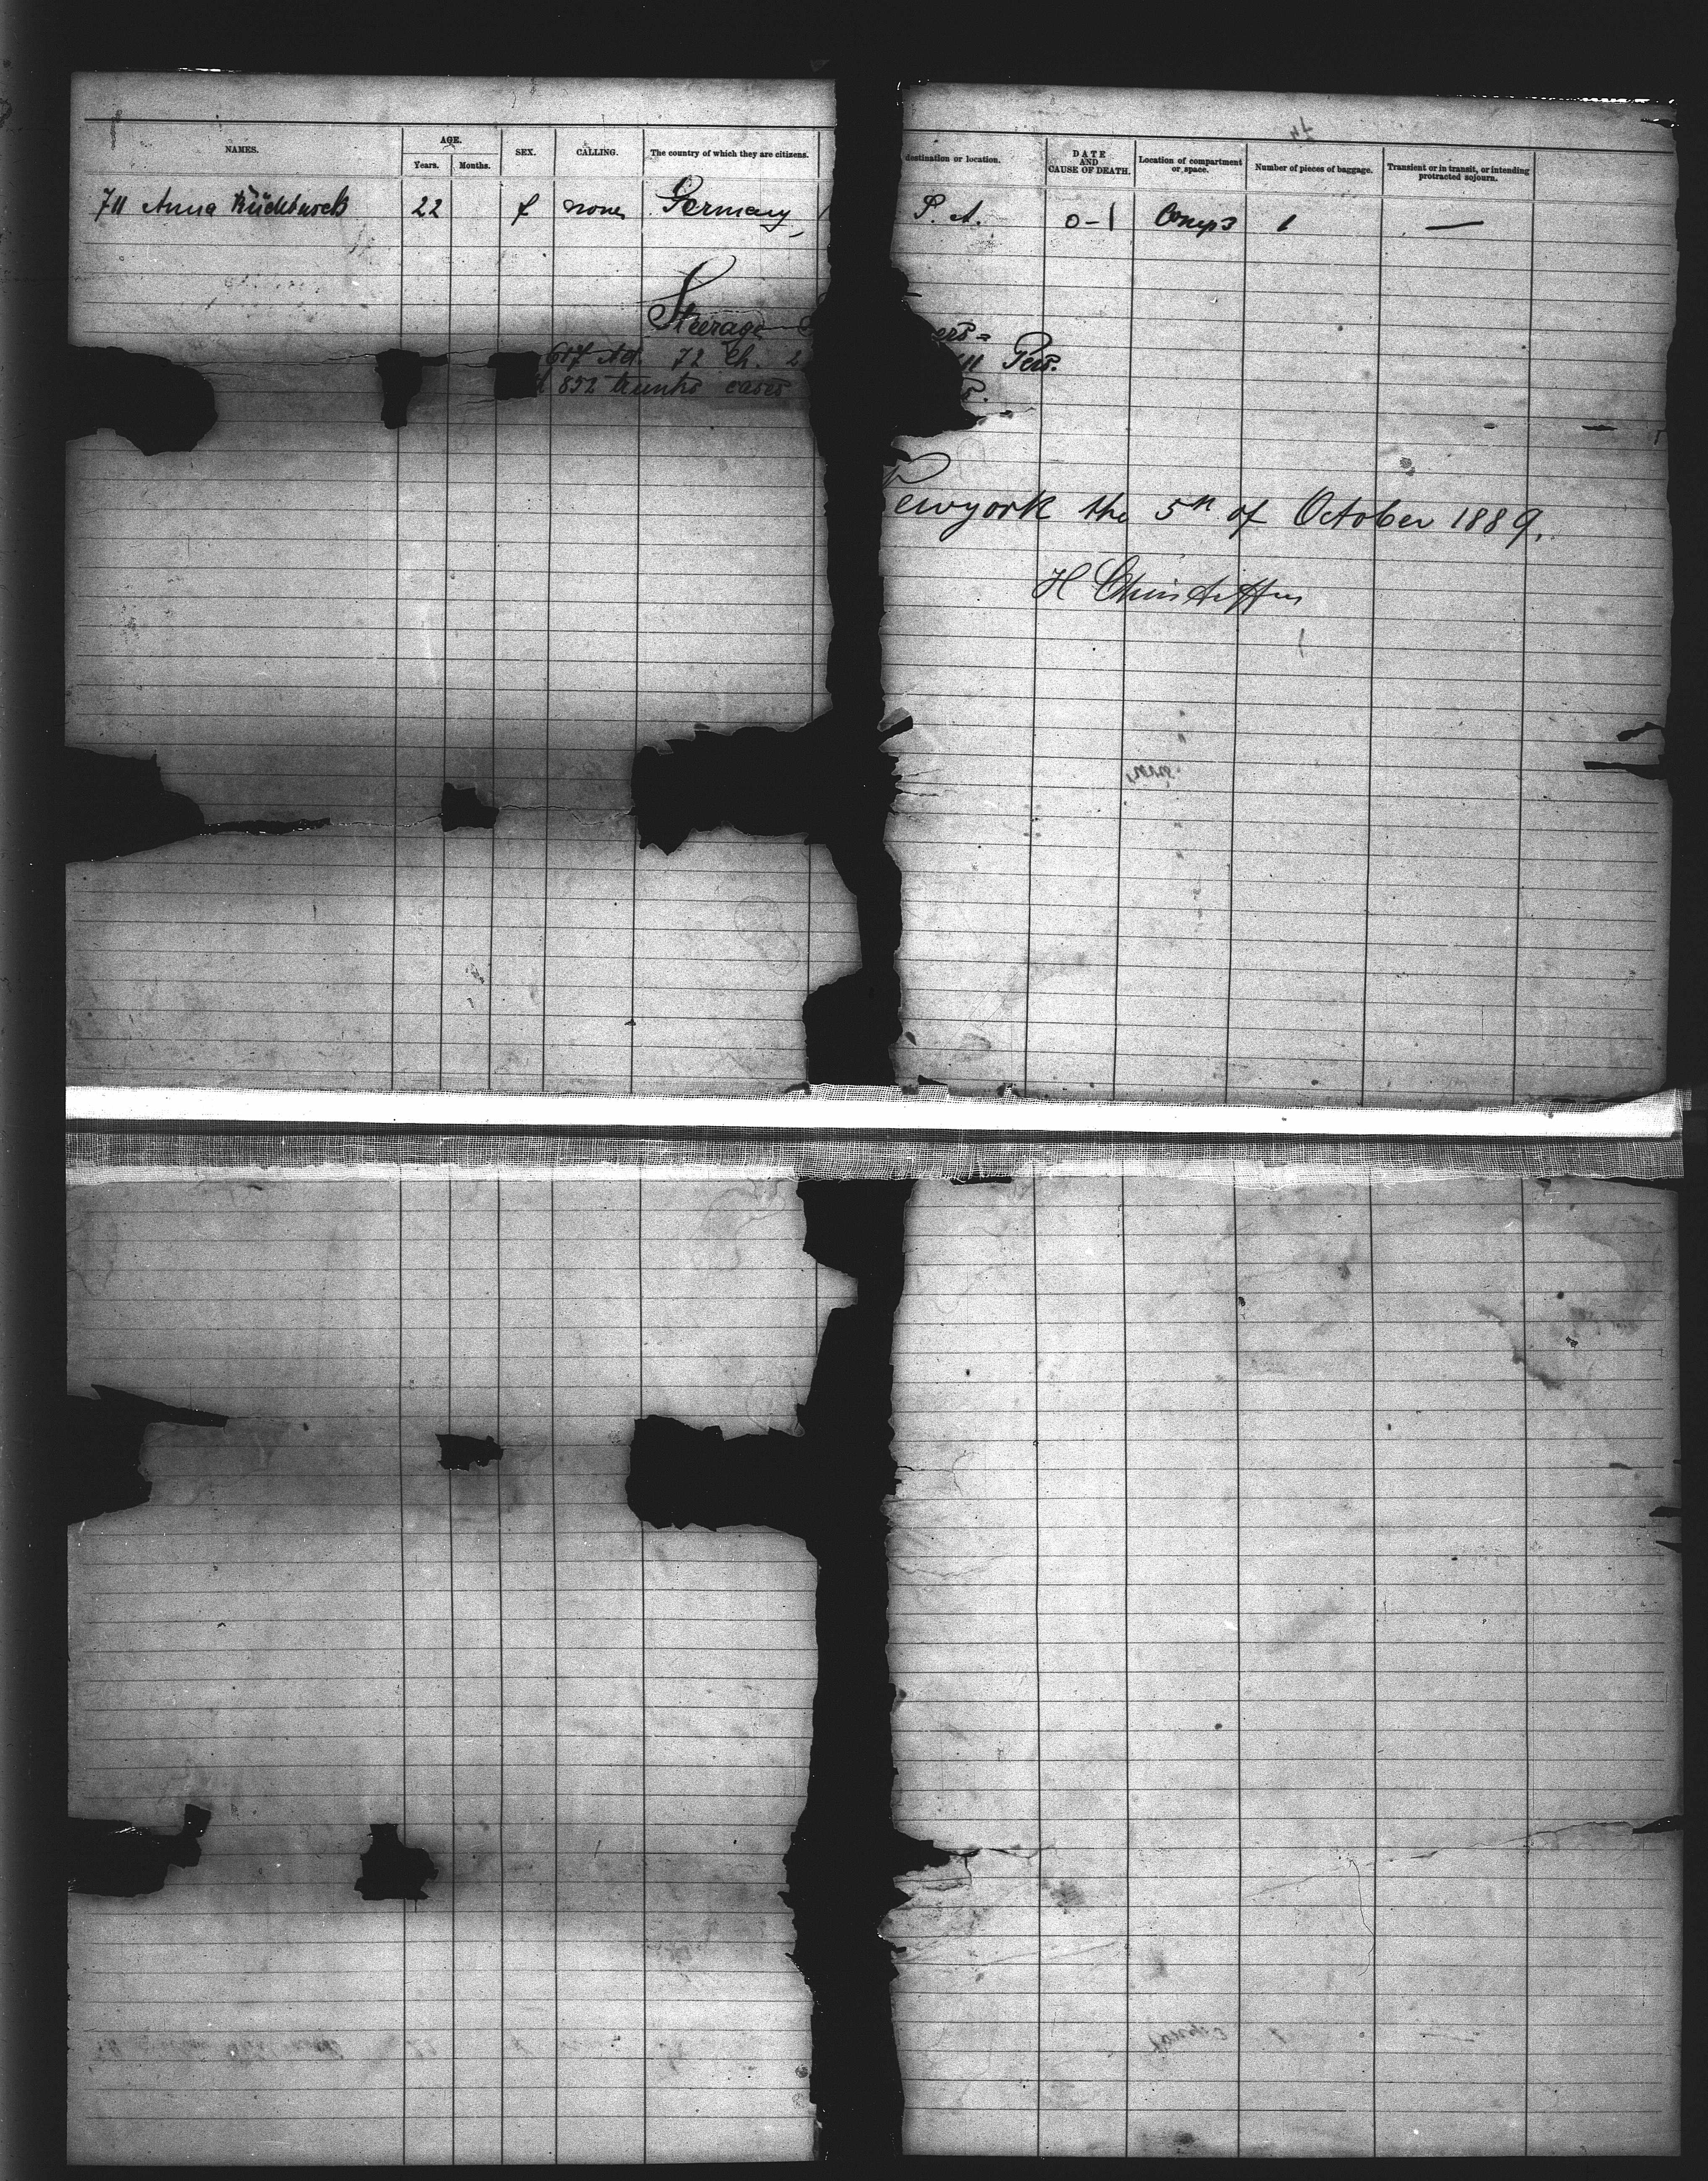 NAMES. AGE. SEX. CALLING. The country of which they are citizens. destination or location. DATE AND CAUSE OF DEATH. Location of compartment or space. Number of pieces of baggage. Transient or in transit, or intending protracted sojourn.
Years. Months.
711 Anna 22 f none Germany P. A. 0-1 Comp3 1 —
Steerage ers=
617 Ad. 72 Ch. 2 11 Pers.
852 trunks cases
ewyork the 5th of October 1889.
H Christoffers